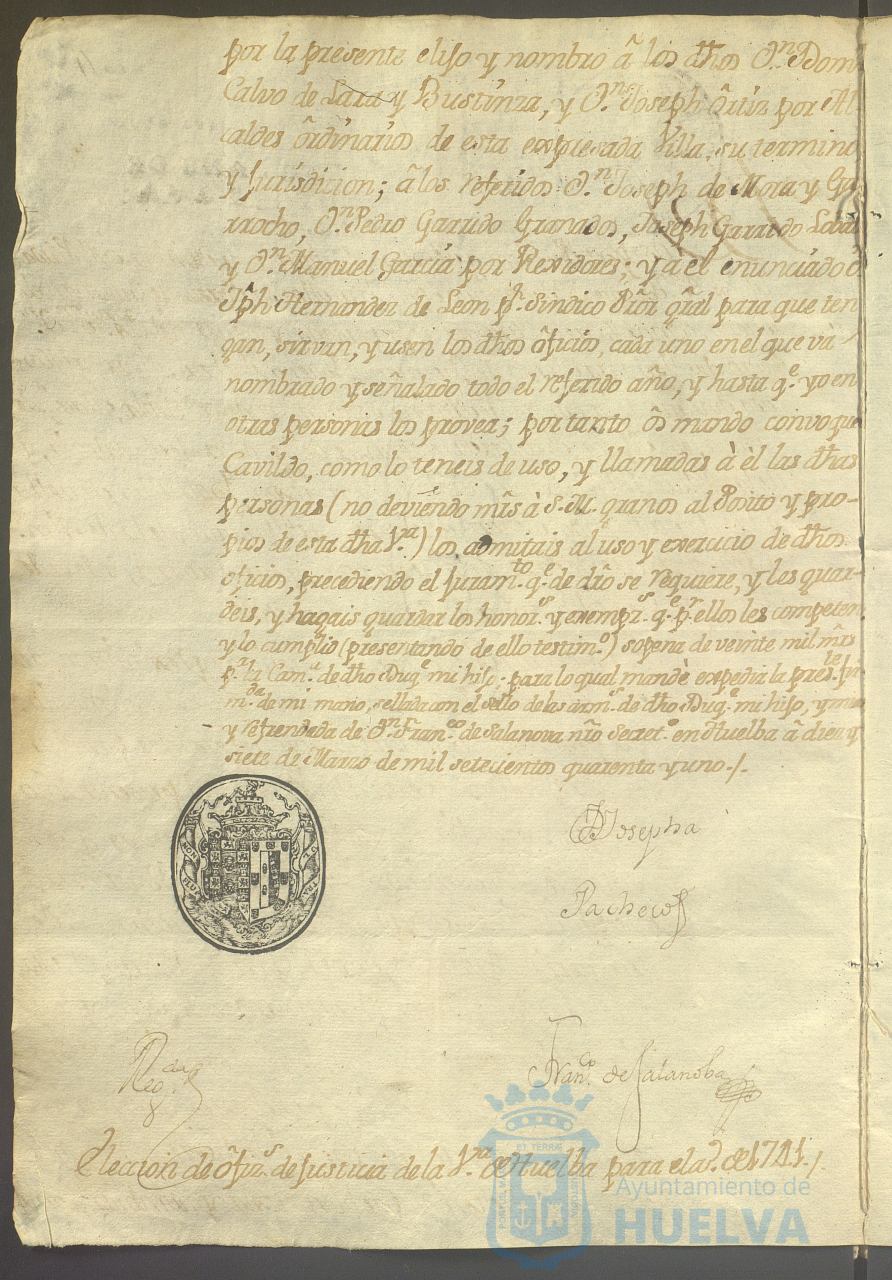 por la presente elijo y nombro â los dhos Dn. Dom
Calvo de Lara y Bustinza, y Dn. Joseph Ôrtiz por Al
caldes ôrdinarios de esta expresada Villa, su termino
y Jurisdicion; â los referidos Dn. Joseph de Mora y Ga
rrocho, Dn. Pedro Garrido Granados, Joseph Garrido Lobat
y Dn. Manuel Garcia por Rexidores; y a el enunciado
Jph Hernandez de Leon pr. Sindico Prôr gral para que ten
gan, sirvan, y usen los dhos ôficios, cada uno en el que va
nombrado y señalado todo el referido año, y hasta qe. yo en
otras personas los provea; por tanto ôs mando convoque
Cavildo, como lo teneis de uso, y llamadas à èl las dhas
personas (no deviendo mrs à S. M. granos al Posito y pro-
pios de esta dha Va.) los admitais al uso y exercicio de dhos
oficios, precediendo el Juramto. qe. de dro se requiere, y les guar-
deis, y hagais guardar los honors. y exempcs. qe. pr. ellos les competen
y lo cumplid (presentando de ello testimo.) so pena de veinte mil mrs
pa. la Cama. de dho Duqe. mi hijo. para lo qual mandè expedir la preste. fir
mda. de mi mano, sellada con el sello de las arms. de dho Duqe. mi hijo, y
y refrendada de Dn. Franco. de Salanova nro Secreto. en Huelba â diez y
siete de Marzo de mil setecientos quarenta y uno./.
NON
PLUS
VLTRA
Josepha
Pacheco
Regda.
Franco. de Salanoba
Eleccion de ôfizs. de Justicia de la Va. de Huelba para el ao. de 1741./
PORTUS MARIS ET TERRAE CUSTODIA
Ayuntamiento de
HUELVA